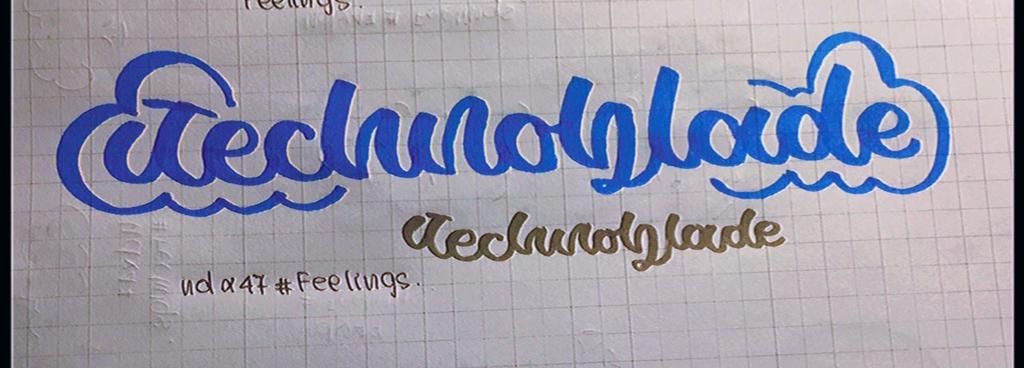 Feelings.
Technoblade
Technoblade
ud α47 #Feelings.